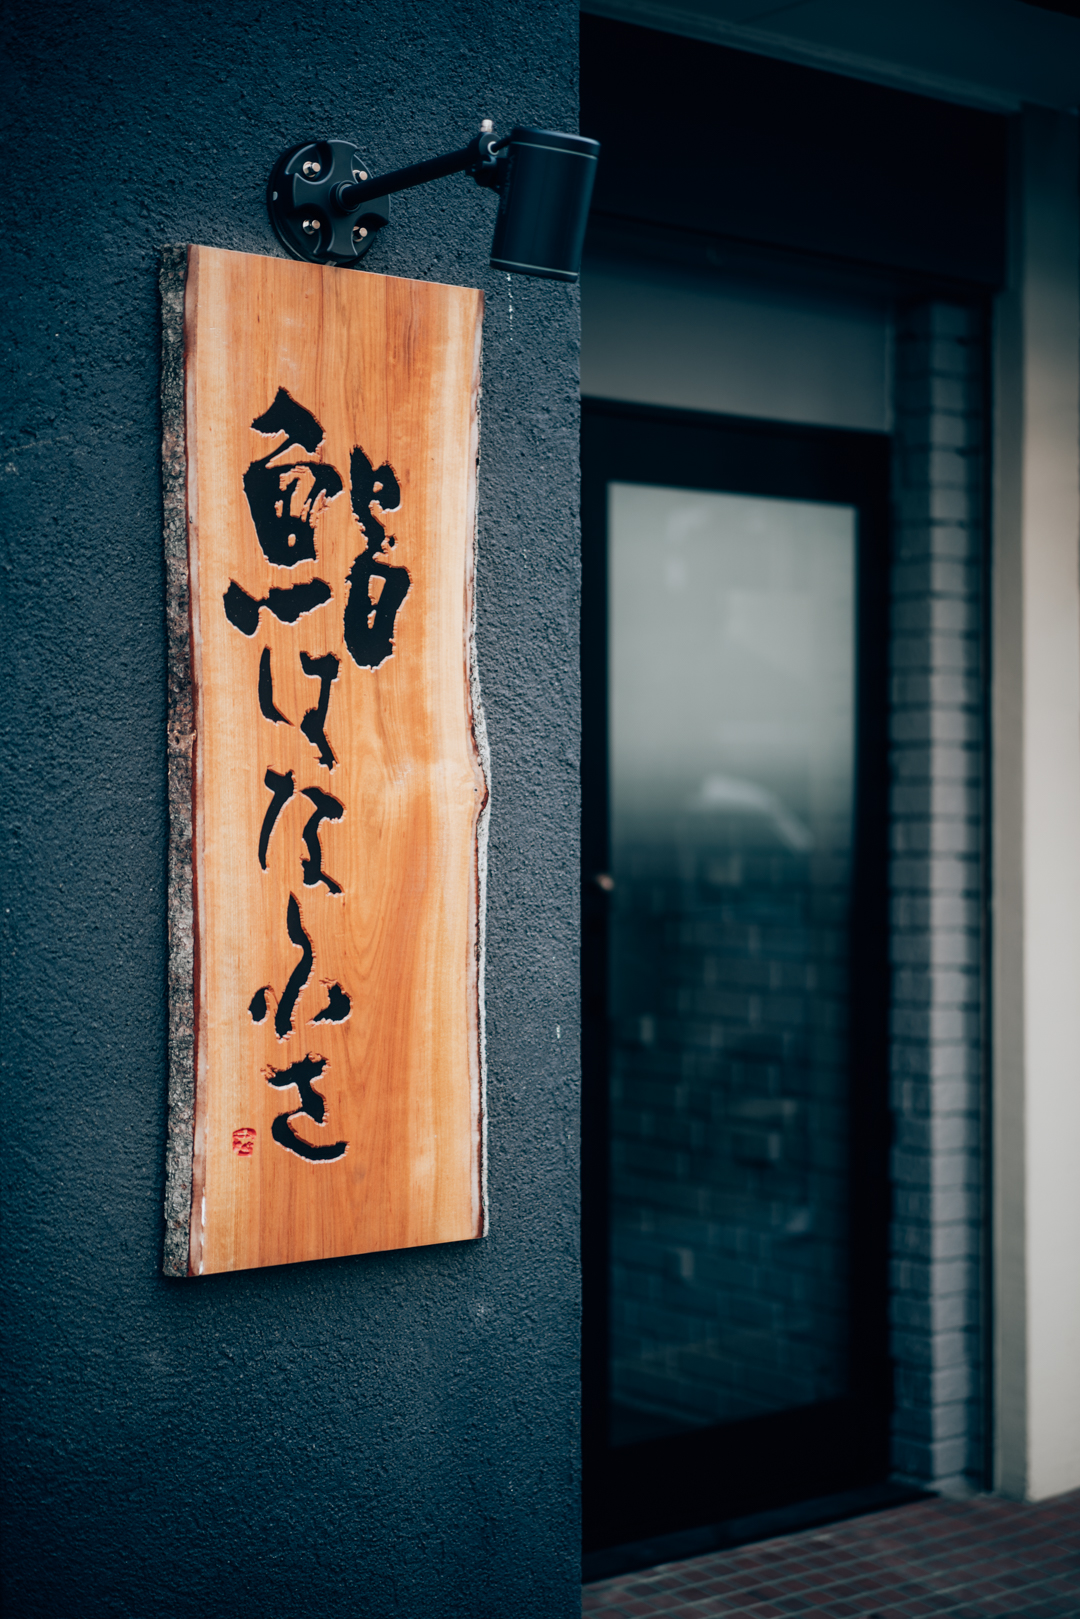 鮨はなふさ